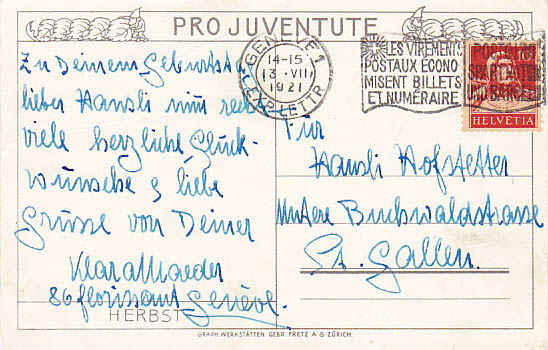 PRO JUVENTUTE
GENÈVE 1
14-15
13·VII
1921
EXP. LETTR.
LES VIREMENTS
POSTAUX ECONO
MISENT BILLETS
ET NUMÉRAIRE
HELVETIA
Zu Deinem Geburtstag
lieber Hansli nimm recht
viele herzliche Glück-
wünsche & liebe
Grüsse von Deiner
Klara Maeder
86 florissant Genève.
Für
Hansli Hofstetter
Untere Buchwaldstrasse
St. Gallen.
HERBST
GRAPH. WERKSTÄTTEN GEBR. FRETZ A.G. ZÜRICH.